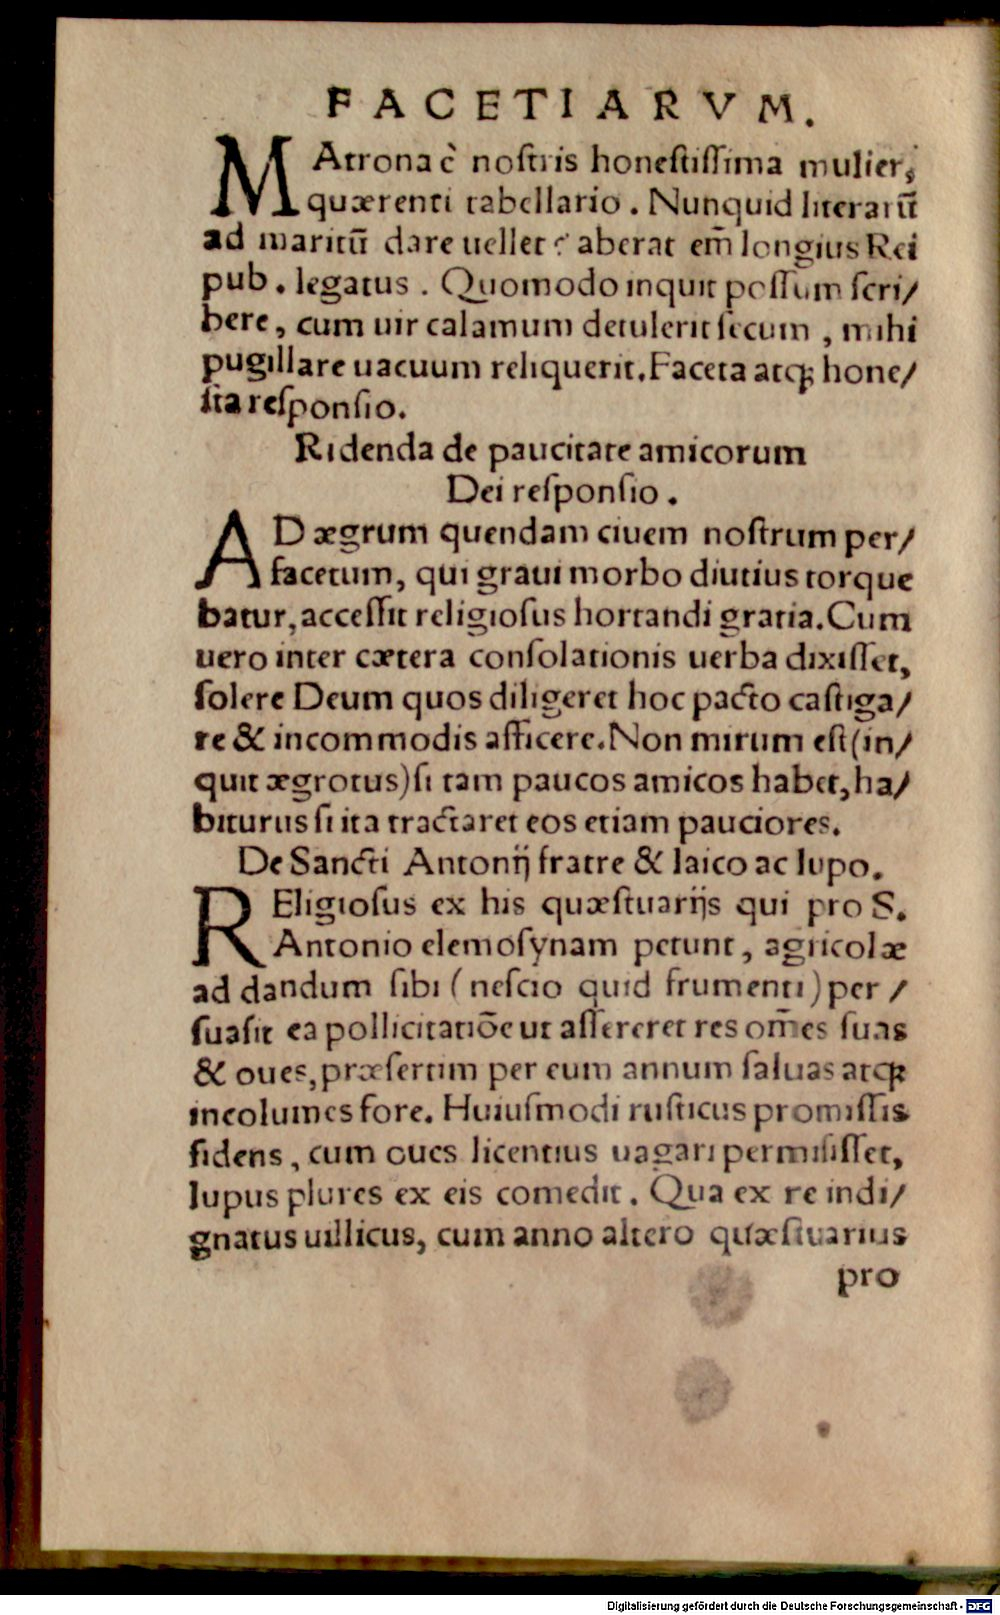 FACETIARVM.
MAtrona è noſtris honeſtiſſima mulier,
quærenti tabellario. Nunquid literarũ
ad maritũ dare uellet? aberat em̃ longius Rei
pub. legatus. Quomodo inquit poſſum ſcri/
bere, cum uir calamum detulerit ſecum, mihi
pugillare uacuum reliquerit. Faceta atq; hone/
ſta reſponſio.
Ridenda de paucitate amicorum
Dei reſponſio.
AD ægrum quendam ciuem noſtrum per/
facetum, qui graui morbo diutius torque
batur, acceſſit religioſus hortandi gratia. Cum
uero inter cætera conſolationis uerba dixiſſet,
ſolere Deum quos diligeret hoc pacto caſtiga/
re & incommodis afficere. Non mirum eſt (in/
quit ægrotus) ſi tam paucos amicos habet, ha/
biturus ſi ita tractaret eos etiam pauciores.
De Sancti Antonij fratre & laico ac lupo.
REligioſus ex his quæſtuarijs qui pro S.
Antonio elemoſynam petunt, agricolæ
ad dandum ſibi (neſcio quid frumenti) per/
ſuaſit ea pollicitatiõe ut aſſereret res om̃es ſuas
& oues, præſertim per eum annum ſaluas atq;
incolumes fore. Huiuſmodi ruſticus promiſſis
fidens, cum oues licentius uagari permiſiſſet,
lupus plures ex eis comedit. Qua ex re indi/
gnatus uillicus, cum anno altero quæſtuarius
pro
Digitalisierung gefördert durch die Deutsche Forschungsgemeinschaft - DFG